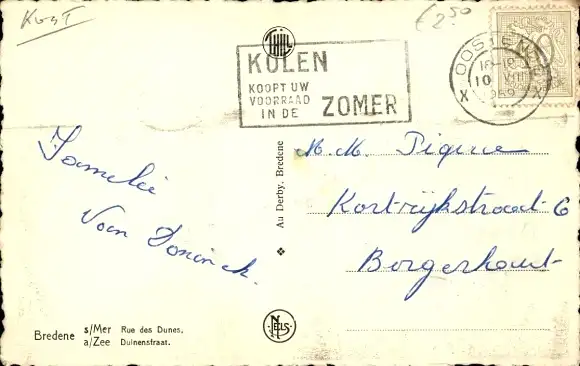 Kust
2.50
THILL
KOLEN
KOOPT UW
VOORRAAD
IN DE
ZOMER
OOSTENDE
10 VIII
1959
X X
Familie
Van Doninck.
Au Derby, Bredene
M. M. Pigure
Kortrijkstraat 6
Borgerhout
NELS
Bredene s/Mer Rue des Dunes.
a/Zee Duinenstraat.